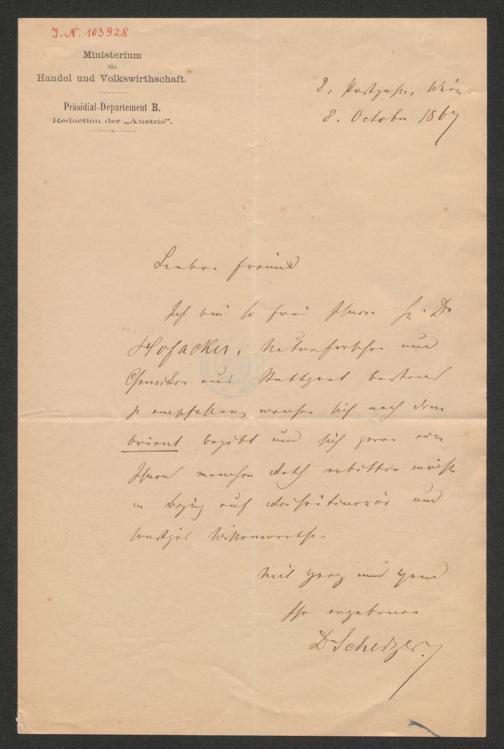 J. N. 103928
Ministerium
für
Handel und Volkswirthschaft.
Präsidial-Departement B.
Redaction der „Austria".
8, Postgasse, Wien
8. October 1867
Lieber Freund
Ich bin so frei Ihnen Hr Dr
Hofacker, Naturforscher und
Chemiker aus Stuttgart bestens
zu empfehlen, welcher sich nach dem
Orient begibt und sich gerne von
Ihnen manchen Rath erbitten möchte
in Bezug auf Reiseitinerär und
sonstiges Wissenswerthe.
Mit Herz und Hand
Ihr ergebener
Dr Scherzer.